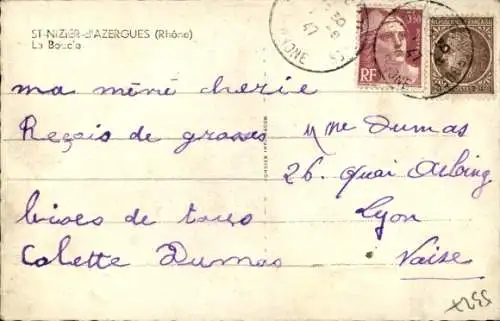 ST-NIZIER-d'AZERGUES (Rhône)
La Boucle
RF
47
47
ma mémé cherie
Reçois de grosses
bises de tous
Colette Dumas
Mme Dumas
26. quai Arloing
Lyon
Vaise